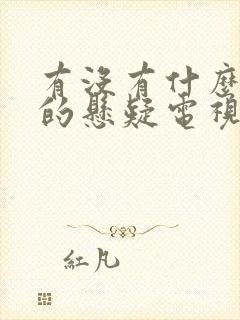 有沒有什麼
的懸疑電視
紅凡